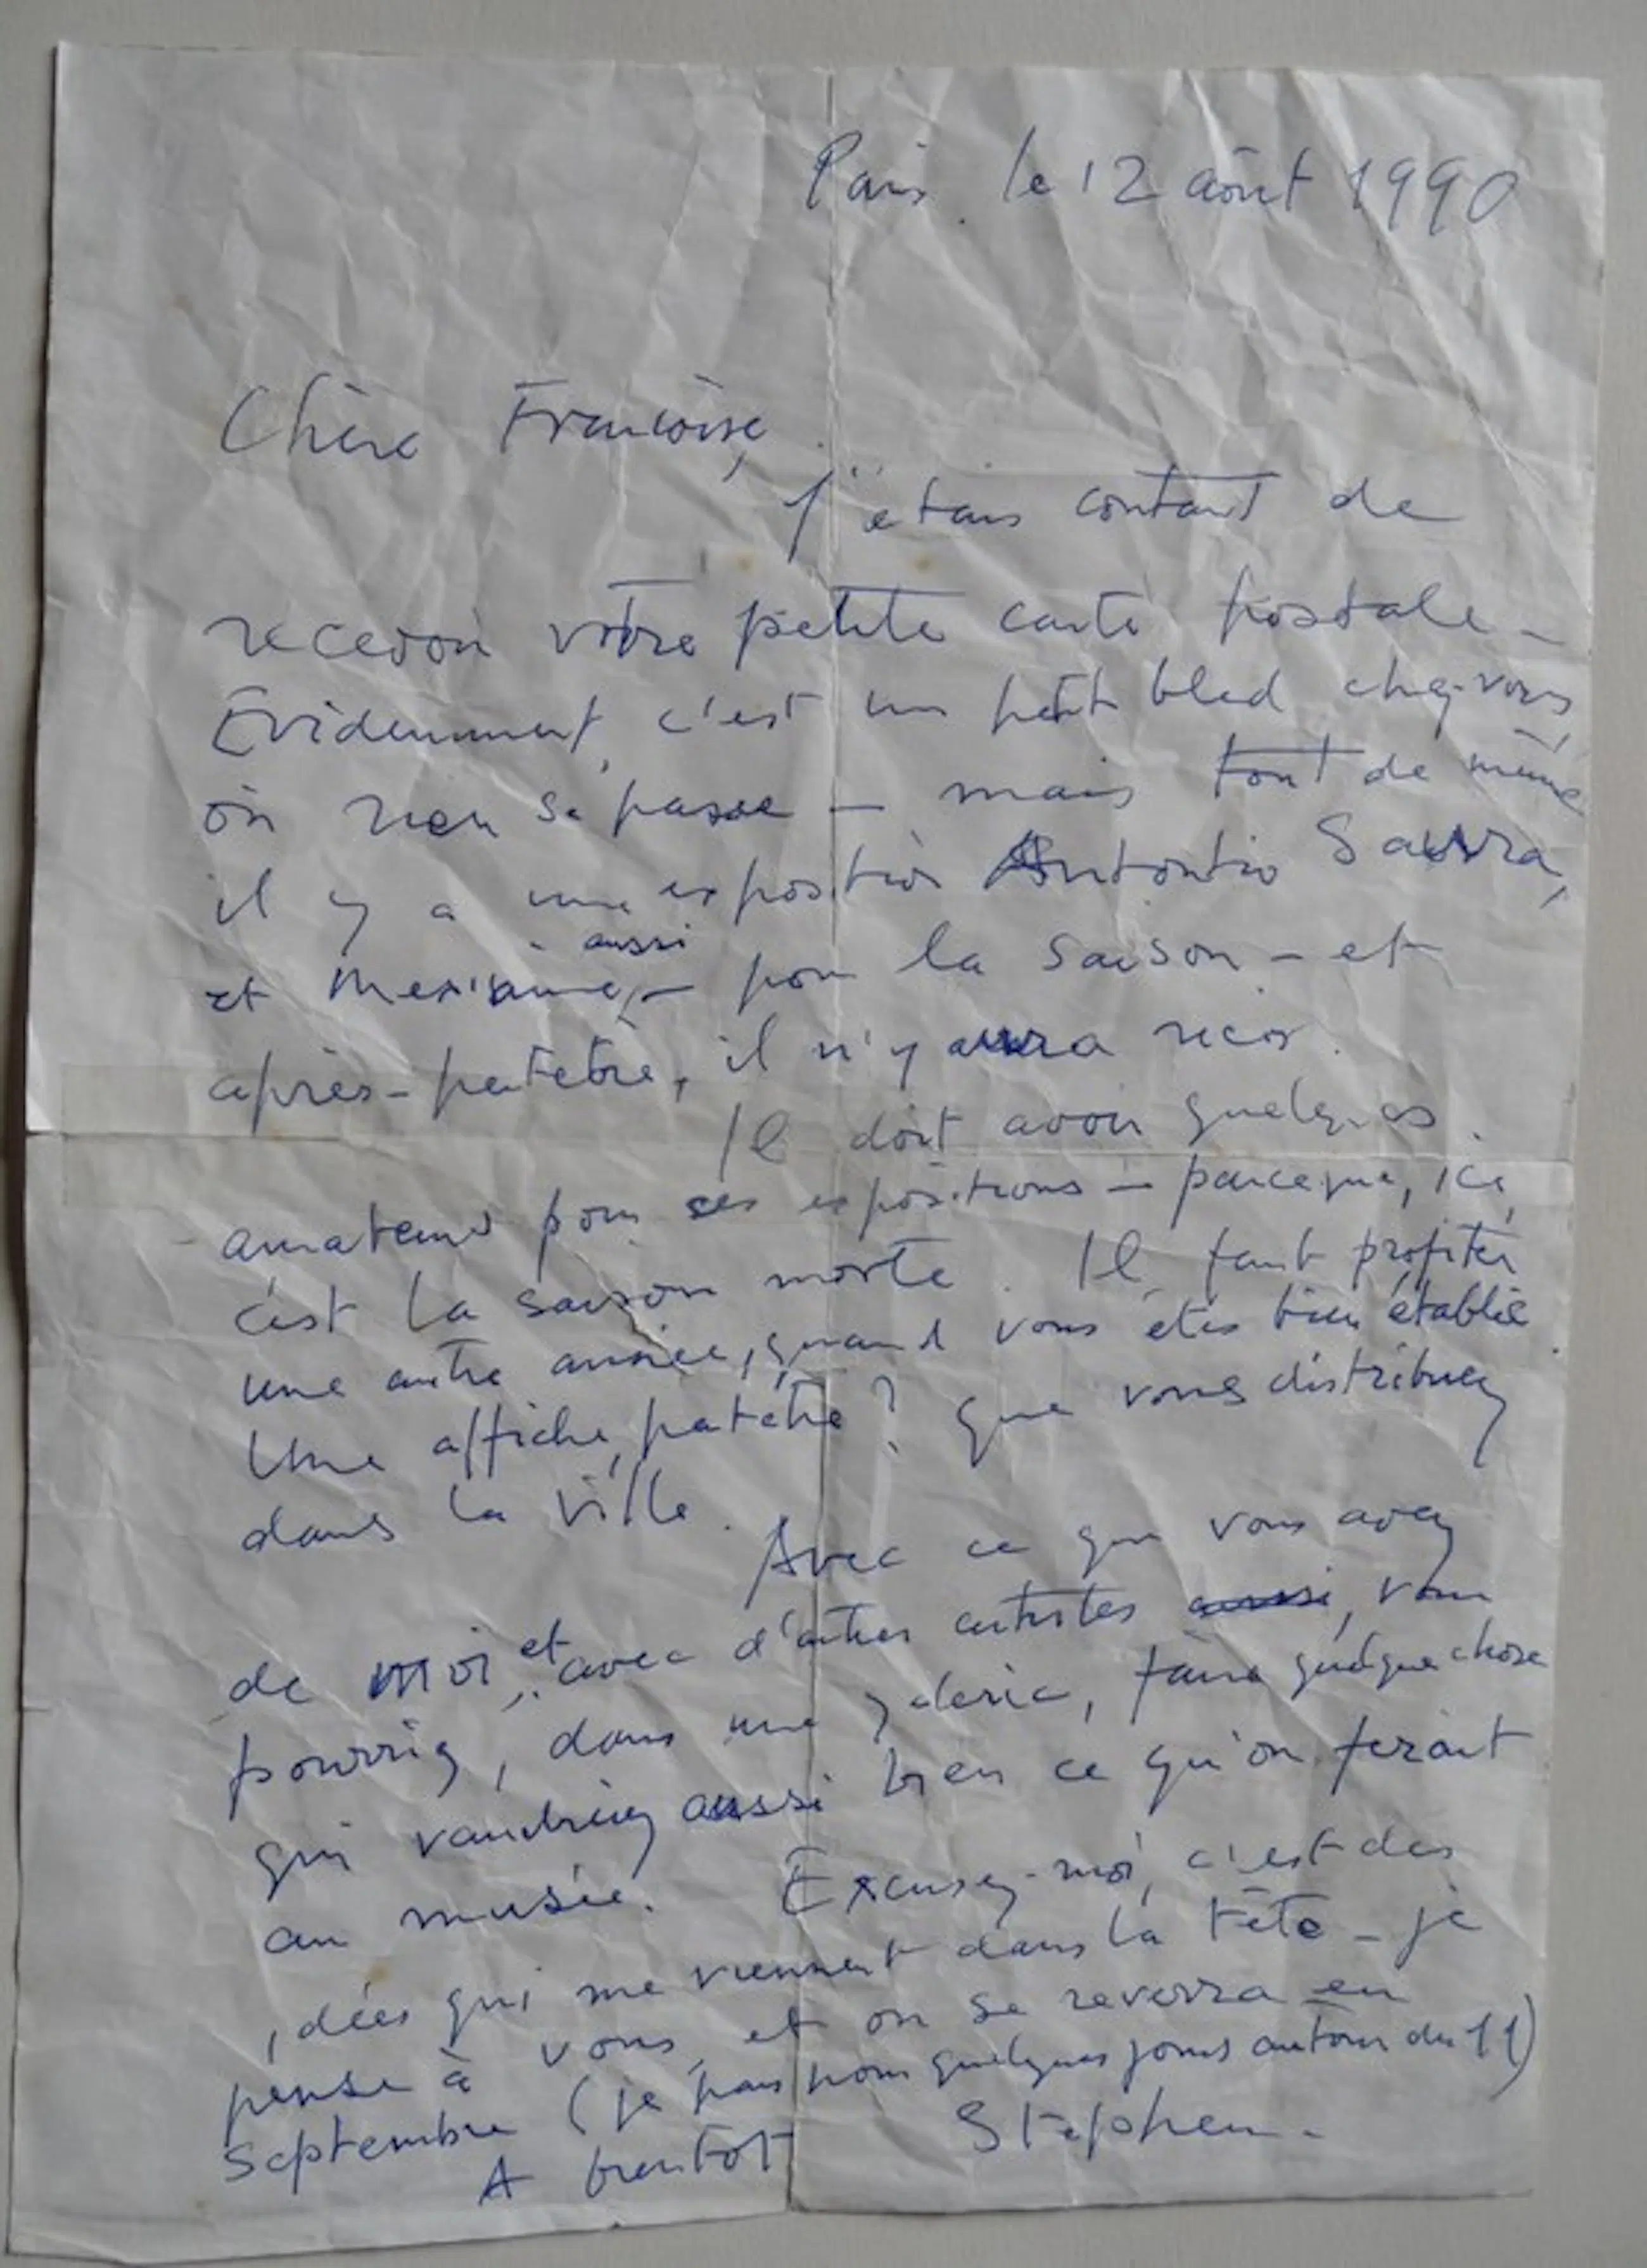 Paris. le 12 août 1990
Chère Françoise,
J'étais contant de
recevoir votre petite carte postale -
Évidemment, c'est un petit bled chez-vous
où rien se passe - mais tout de même
il y a une exposition Antontio Saura,
et aussi - pour la saison - et
après - peutêtre, il n'y aura rien.
Il doit avoir quelques
amateurs pour ces expositions - parceque, ici,
c'est la saison morte. Il faut profiter
une autre année, quand vous êtes bien établie
Une affiche, patêtre ? que vous distribuez
dans la ville.
Avec ce que vous avez
de moi, et avec d'autres artistes aussi, vous
pourriez, dans une galerie, faire quelque chose
qui vaudriez aussi bien ce qu'on ferait
au musée. Excusez-moi, c'est des
idées qui me viennent dans la tête - je
pense à vous, et on se reverra en
Septembre (je pars pour quelques jours autour du 11)
A bientôt Stephen.